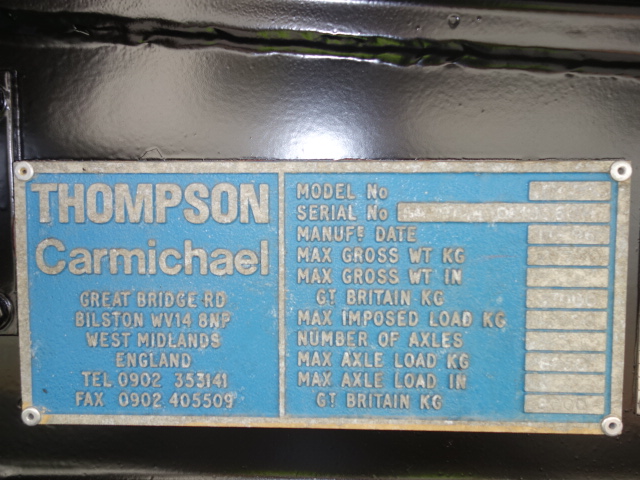 THOMPSON
Carmichael
GREAT BRIDGE RD
BILSTON WV14 8NP
WEST MIDLANDS
ENGLAND
TEL 0902 353141
FAX 0902 405509
MODEL No
SERIAL No
MANUFR DATE
MAX GROSS WT KG
MAX GROSS WT IN
GT BRITAIN KG
MAX IMPOSED LOAD KG
NUMBER OF AXLES
MAX AXLE LOAD KG
MAX AXLE LOAD IN
GT BRITAIN KG